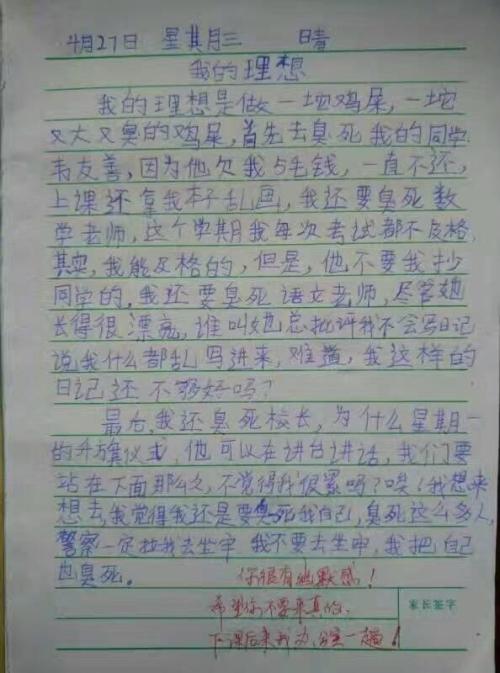 4月27日 星其月三 晴
我的理想
我的理想是做一坨鸡屎,一坨
又大又臭的鸡屎,首先去臭死我的同学
韦友善,因为他欠我5毛钱,一直不还,
上课还拿我本子乱画,我还要臭死数
学老师,这个学期我每次考试都不及格,
其实,我能及格的,但是,他不要我抄
同学的,我还要臭死语文老师,尽管她
长得很漂亮,谁叫她总批评我不会写日记
说我什么都乱写进来,难道,我这样的
日记还不够好吗?
最后,我还臭死校长,为什么星期一
的升旗仪式,他可以在讲台讲话,我们要
站在下面那么久,不觉得我很累吗?唉!我想来
想去,我觉得我还是要臭死我自己,臭死这么多人,
警察一定拉我去坐牢 我不要去坐牢,我把自己
也臭死。
你很有幽默感!
希望你不要来真的.
家长签字
下课后来我办公室一趟!